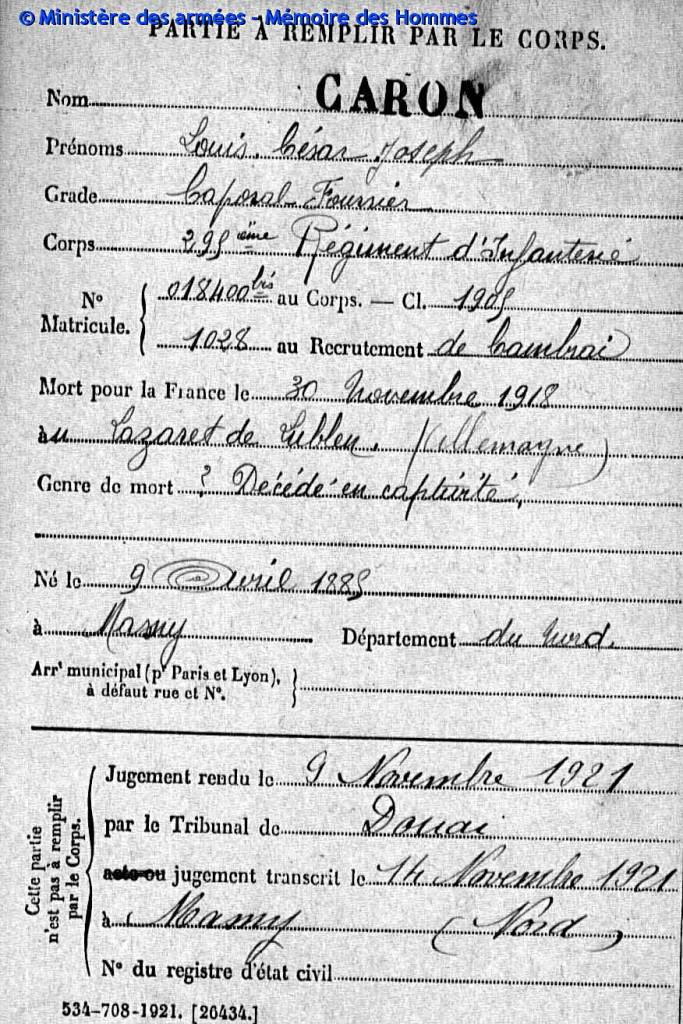 © Ministère des armées - Mémoire des Hommes
PARTIE À REMPLIR PAR LE CORPS.
Nom CARON
Prénoms Louis César Joseph
Grade Caporal Fourrier
Corps 295ème Régiment d'Infanterie
No Matricule. 018400 bis au Corps. — Cl. 1905
1028 au Recrutement de Cambrai
Mort pour la France le 30 Novembre 1918
au Lazaret de Lubben, (Allemagne)
Genre de mort ? Décédé en captivité,
Né le 9 Avril 1885
à Masny Département du Nord.
Arrt municipal (pr Paris et Lyon),
à défaut rue et No.
Cette partie n'est pas à remplir par le Corps.
Jugement rendu le 9 Novembre 1921
par le Tribunal de Douai
acte ou jugement transcrit le 14 Novembre 1921
à Masny (Nord)
No du registre d'état civil
534-708-1921. [26434.]